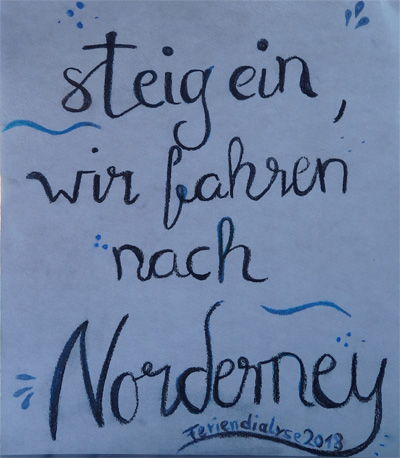 steig ein,
wir fahren
nach
Norderney
Feriendialyse2018